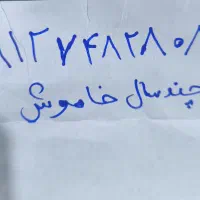 ۱۲۷۴۸۲۸۰
چند سال خاموش